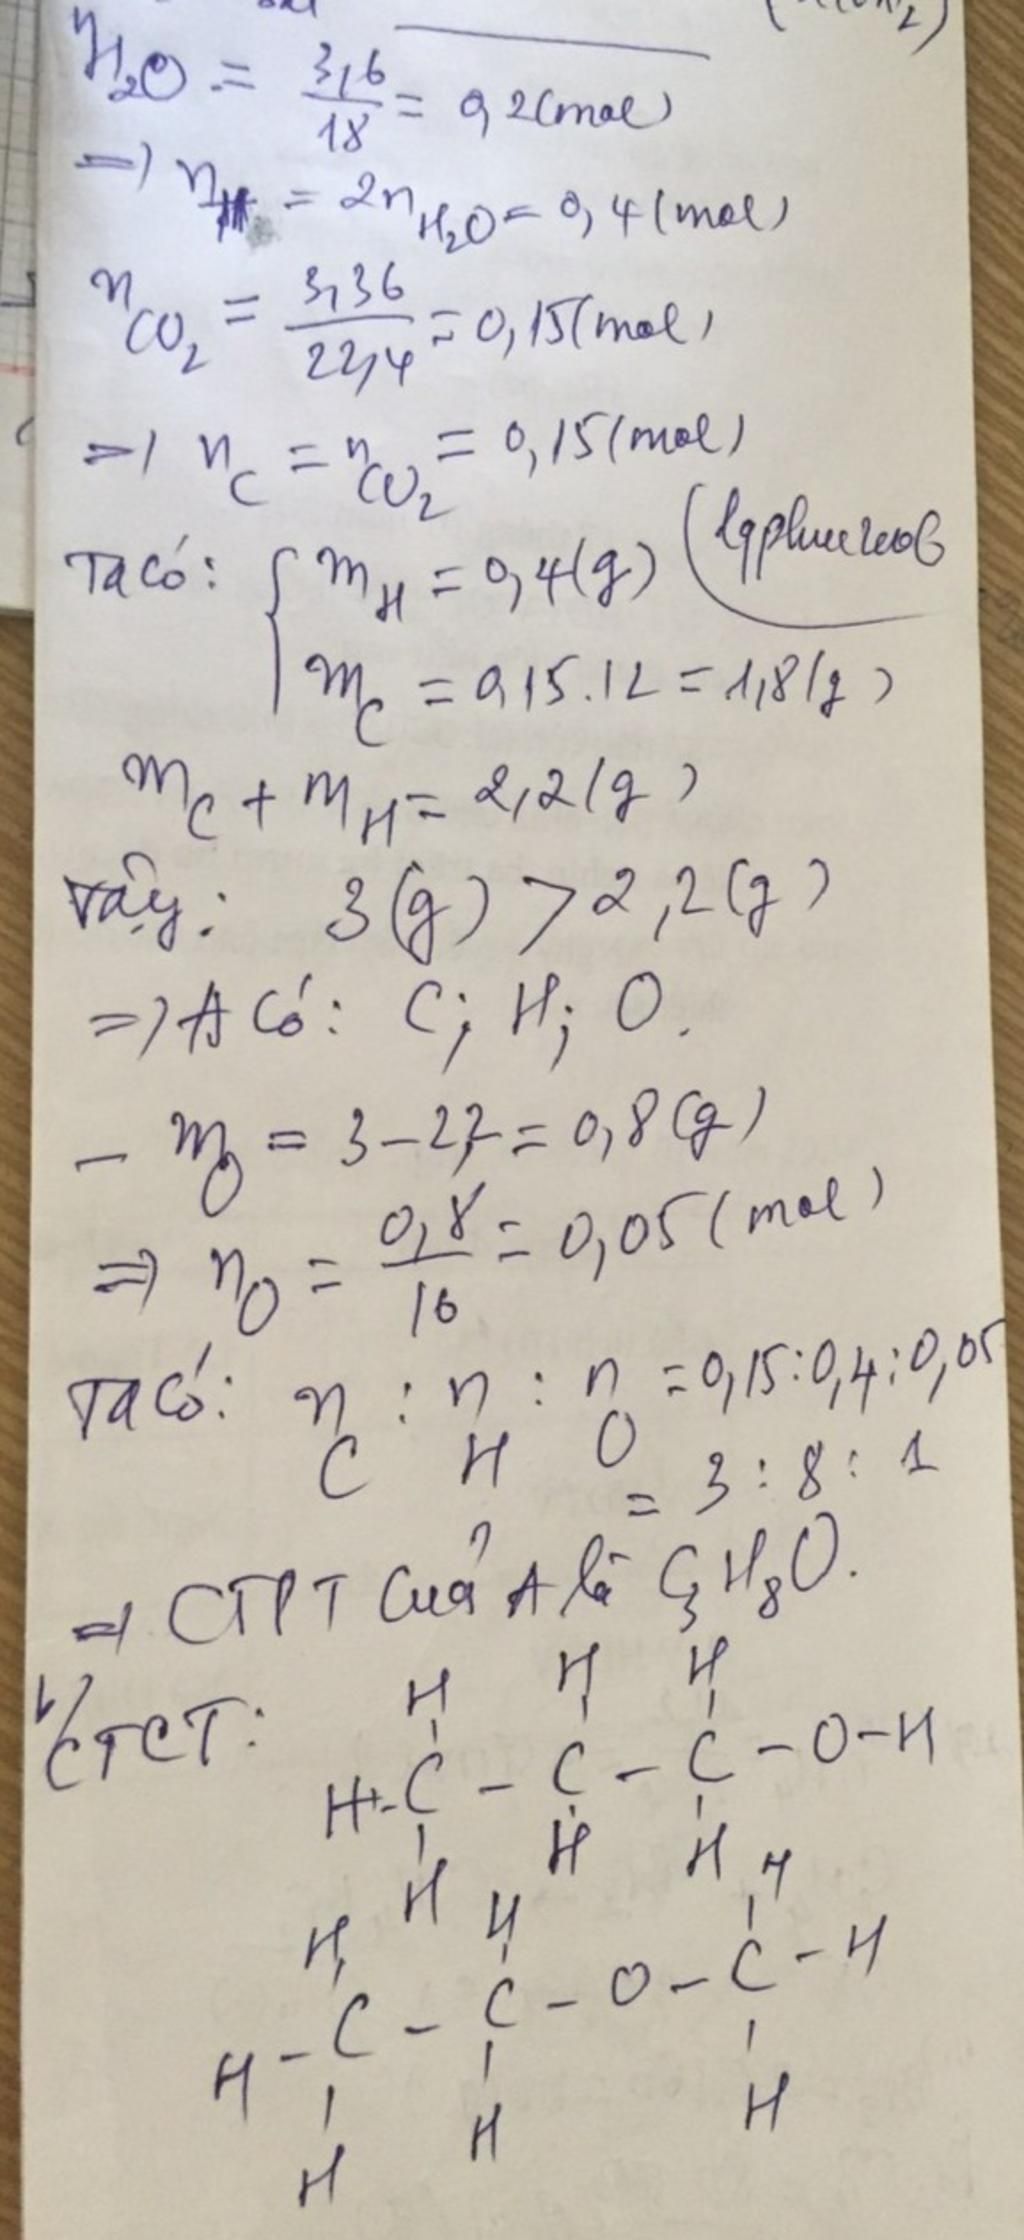 nH₂O = 3,6/18 = 0,2(mol)
=> nH = 2nH₂O = 0,4(mol)
nCO₂ = 3,36/22,4 = 0,15(mol)
=> nC = nCO₂ = 0,15(mol)
Ta có: { mH = 0,4(g)
mC = 0,15.12 = 1,8(g)
mC + mH = 2,2(g)
Vậy: 3(g) > 2,2(g)
=> A có: C; H; O.
- mO = 3 - 2,2 = 0,8(g)
=> nO = 0,8/16 = 0,05(mol)
Ta có: nC : nH : nO = 0,15 : 0,4 : 0,05
= 3 : 8 : 1
=> CTPT của A là C₃H₈O.
b/ CTCT:
H H H
H - C - C - C - O - H
H H H
H H H
H - C - C - O - C - H
H H H